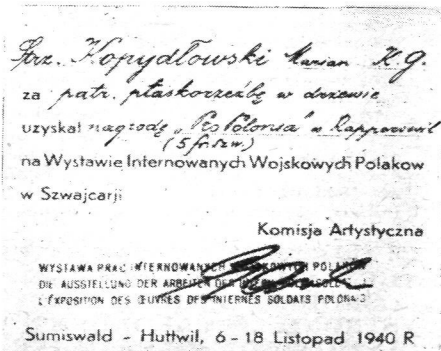 Strz. Kopydłowski Marian K.G.
za patr. płaskorzeźbę w drzewie
uzyskał nagrodę „Pro Polonia” w Rapperswil
(5 fr. szw.)
na Wystawie Internowanych Wojskowych Polakow
w Szwajcarji
Komisja Artystyczna
WYSTAWA PRAC INTERNOWANYCH WOJSKOWYCH POLAKÓW
DIE AUSSTELLUNG DER ARBEITEN DER
L'EXPOSITION DES ŒUVRES DES INTERNÉS SOLDATS POLONAIS
Sumiswald - Huttwil, 6 - 18 Listopad 1940 R